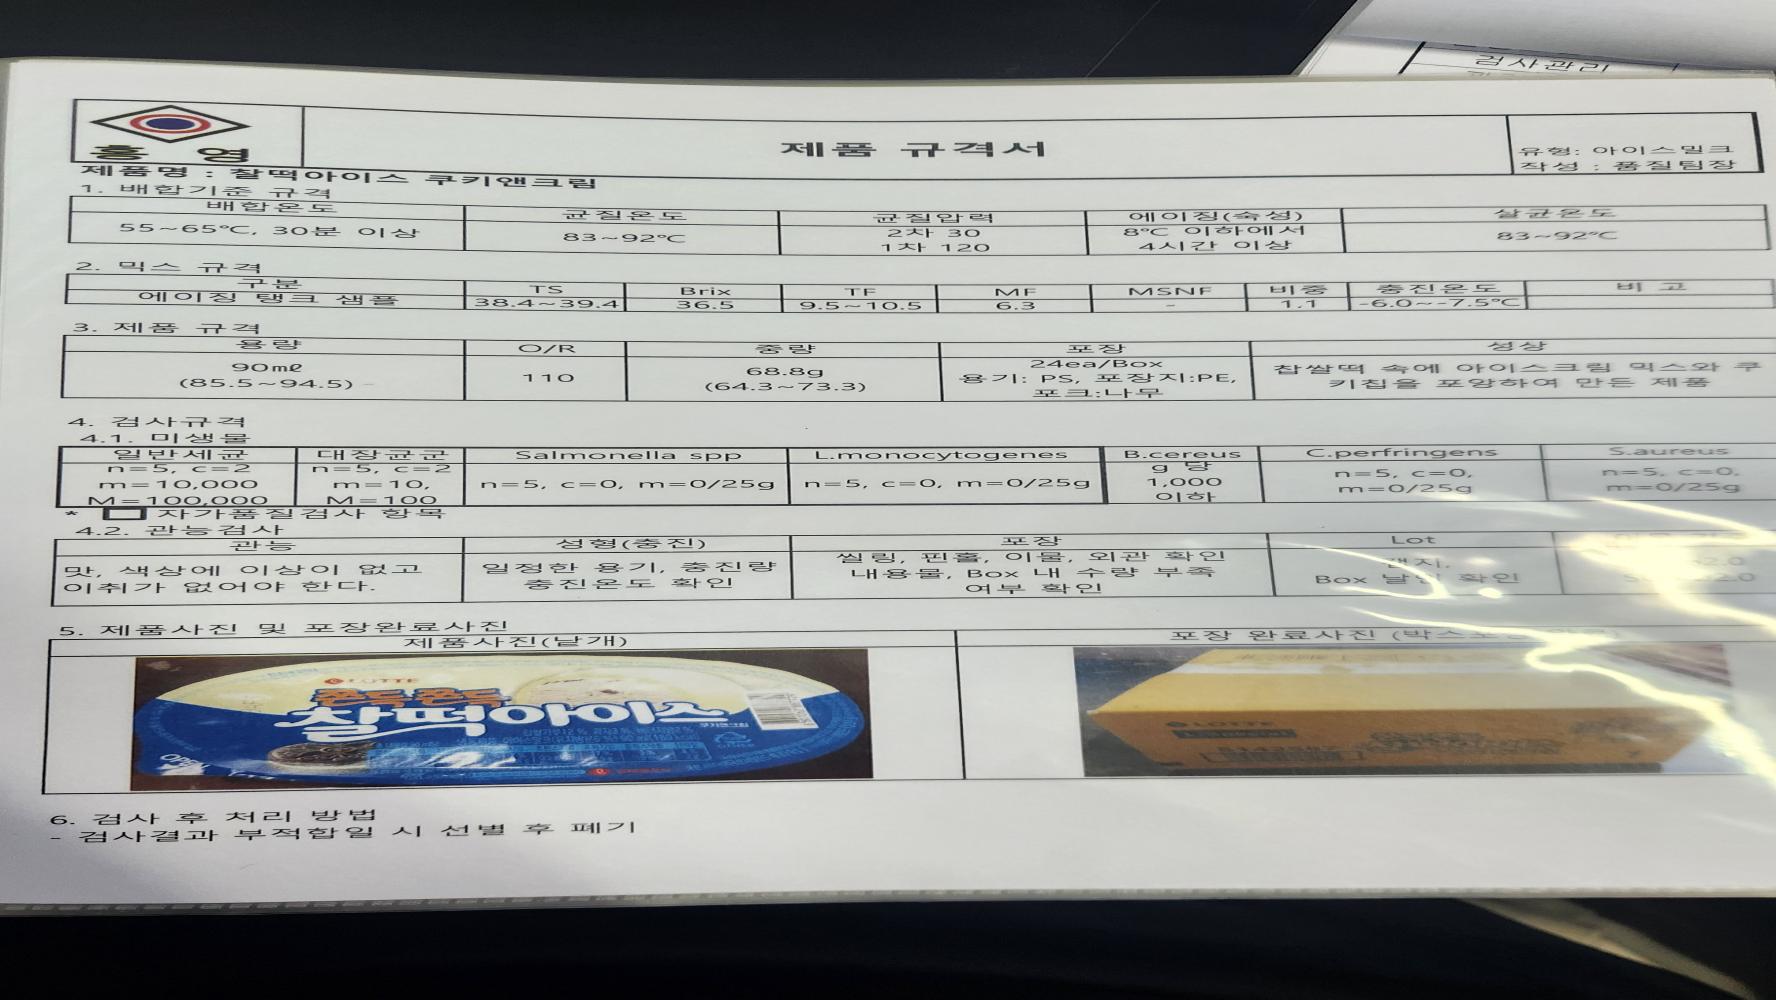 검사관리
홍 영
제품 규격서
유형: 아이스밀크
작성 : 품질팀장
제품명 : 찰떡아이스 쿠키앤크림
1. 배합기준 규격
배합온도 균질온도 균질압력 에이징(숙성) 살균온도
55~65℃, 30분 이상 83~92℃ 2차 30 8℃ 이하에서 83~92℃
1차 120 4시간 이상
2. 믹스 규격
구분 TS Brix TF MF MSNF 비중 충진온도 비 고
에이징 탱크 샘플 38.4~39.4 36.5 9.5~10.5 6.3 - 1.1 -6.0~-7.5℃
3. 제품 규격
용량 O/R 중량 포장 성상
90㎖ 110 68.8g 24ea/Box 찹쌀떡 속에 아이스크림 믹스와 쿠
(85.5~94.5) (64.3~73.3) 용기: PS, 포장지:PE, 키칩을 포앙하여 만든 제품
포크:나무
4. 검사규격
4.1. 미생물
일반세균 대장균군 Salmonella spp L.monocytogenes B.cereus C.perfringens S.aureus
n=5, c=2 n=5, c=2 n=5, c=0, m=0/25g n=5, c=0, m=0/25g g 당 n=5, c=0, n=5, c=0,
m=10,000 m=10, 1,000 m=0/25g m=0/25g
M=100,000 M=100 이하
* 자가품질검사 항목
4.2. 관능검사
관능 성형(충진) 포장 Lot
맛, 색상에 이상이 없고 일정한 용기, 충진량 씰링, 핀홀, 이물, 외관 확인
이취가 없어야 한다. 충진온도 확인 내용물, Box 내 수량 부족 Box 날인 확인
여부 확인
5. 제품사진 및 포장완료사진
제품사진(낱개) 포장 완료사진
LOTTE
쫀득쫀득
찰떡아이스
쿠키앤크림
OPEN
LOTTE
6. 검사 후 처리 방법
- 검사결과 부적합일 시 선별 후 폐기